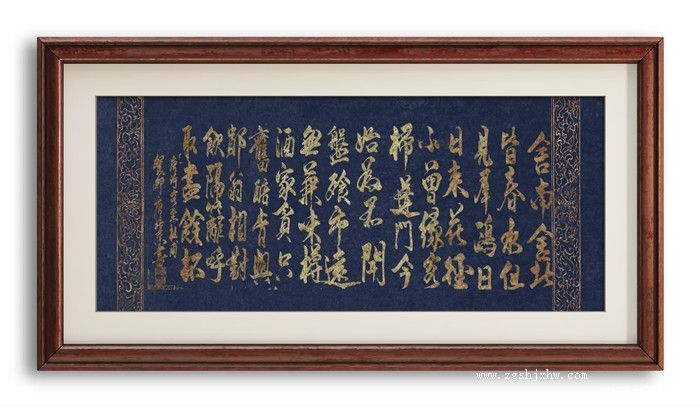 舍南舍北
皆春水但
見羣鷗日
日來花徑
不曾緣客
掃蓬門今
始為君開
盤飧市遠
無兼味樽
酒家貧只
舊醅肯與
鄰翁相對
飲隔籬呼
取盡餘杯
癸卯
www.zgshjxhw.com